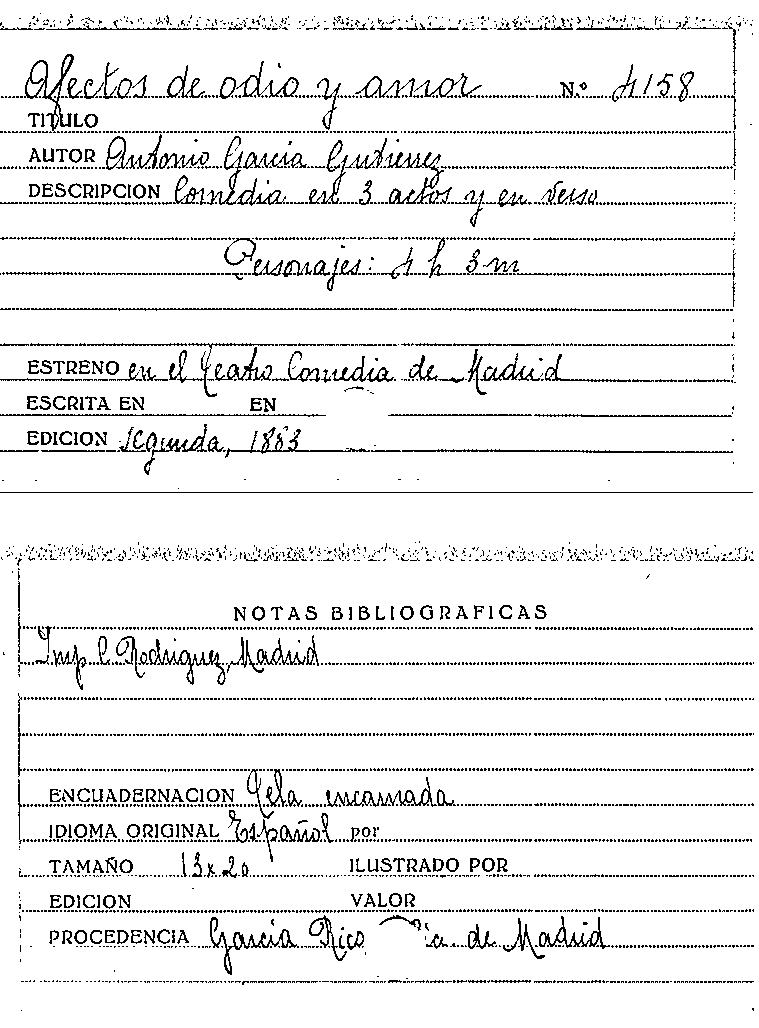 Afectos de odio y amor N.º 4158
TITULO
AUTOR Antonio García Gutierrez
DESCRIPCION Comedia en 3 actos y en verso
Personajes: 4 h 3 m
ESTRENO en el Teatro Comedia de Madrid
ESCRITA EN EN
EDICION segunda, 1883
NOTAS BIBLIOGRAFICAS
Imp C. Rodriguez, Madrid
ENCUADERNACION Tela encarnada
IDIOMA ORIGINAL Español por
TAMAÑO 13x20 ILUSTRADO POR
EDICION VALOR
PROCEDENCIA García Rico de Madrid